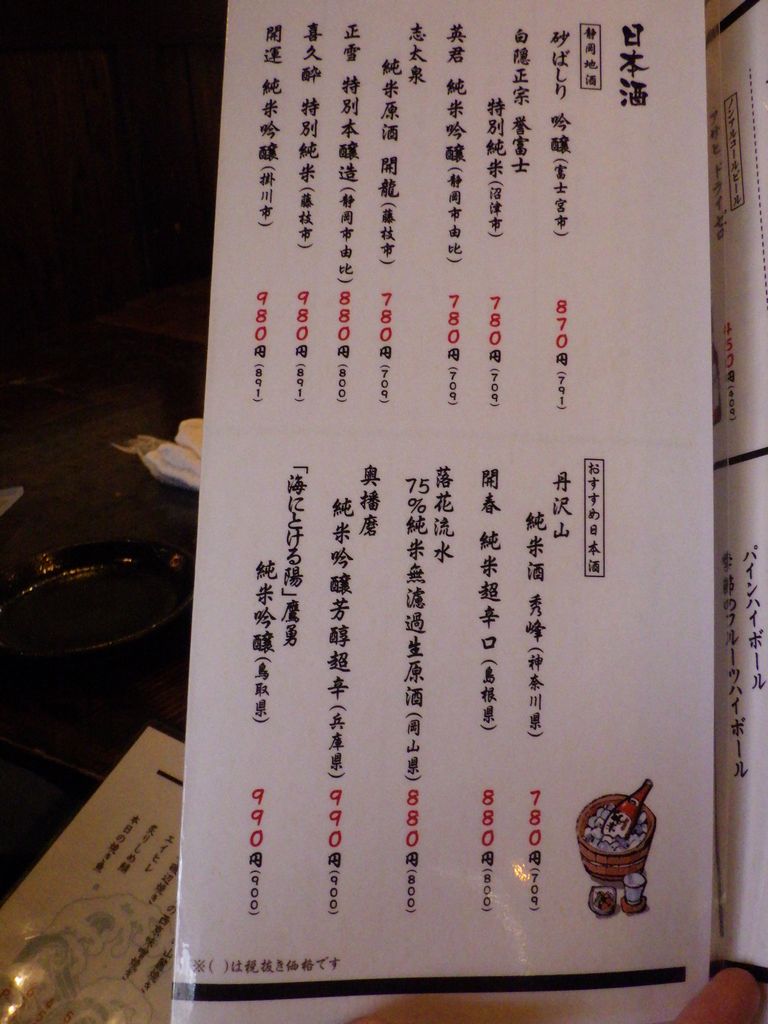 日本酒
静岡地酒
砂ばしり 吟醸(富士宮市) 870円(791)
白隠正宗 誉富士
特別純米(沼津市) 780円(709)
英君 純米吟醸(静岡市由比) 780円(709)
志太泉
純米原酒 開龍(藤枝市) 780円(709)
正雪 特別本醸造(静岡市由比) 880円(800)
喜久酔 特別純米(藤枝市) 980円(891)
開運 純米吟醸(掛川市) 980円(891)
おすすめ日本酒
丹沢山
純米酒 秀峰(神奈川県) 780円(709)
開春 純米超辛口(島根県) 880円(800)
落花流水
75%純米無濾過生原酒(岡山県) 880円(800)
奥播磨
純米吟醸芳醇超辛(兵庫県) 990円(900)
「海にとける陽」鷹勇
純米吟醸(鳥取県) 990円(900)
※( )は税抜き価格です
ノンアルコールビール
450円(409)
パインハイボール
季節のフルーツハイボール
エイヒレ
炙りしめ鯖
本日の焼き魚